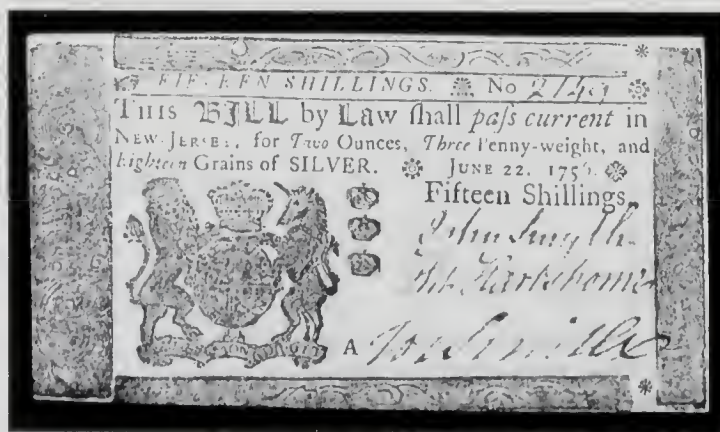 FIFTEEN SHILLINGS. No 2149
THIS BILL by Law ſhall paſs current in
NEW-JERSEY, for Two Ounces, Three Penny-weight, and
Eighteen Grains of SILVER. JUNE 22. 1756.
Fifteen Shillings
John Smyth
Hartshorne
A